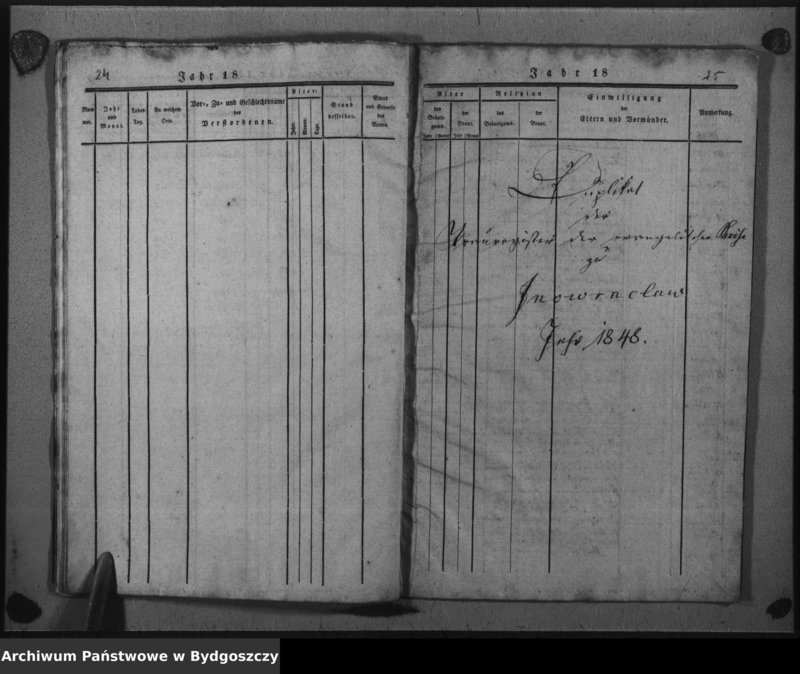 24
Jahr 18
Num mer.
Jahr und Monat.
Todes-Tag.
An welchem Orte.
Vor-, Zu- und Geschlechtsname der Verstorbenen.
Alter:
Jahre.
Monate.
Tage.
Stand desselben.
Stand und Gewerbe des Vaters.
Jahr 18
25
Alter
des Bräutigams.
der Braut.
Jahr Monat Jahr Monat
Religion
des Bräutigams.
der Braut.
Einwilligung
der
Eltern und Vormünder.
Anmerkung.
Duplikat
der
Trauregister der evangelischen Kirche
zu
Inowraclaw
Jahr 1848.
Archiwum Państwowe w Bydgoszczy